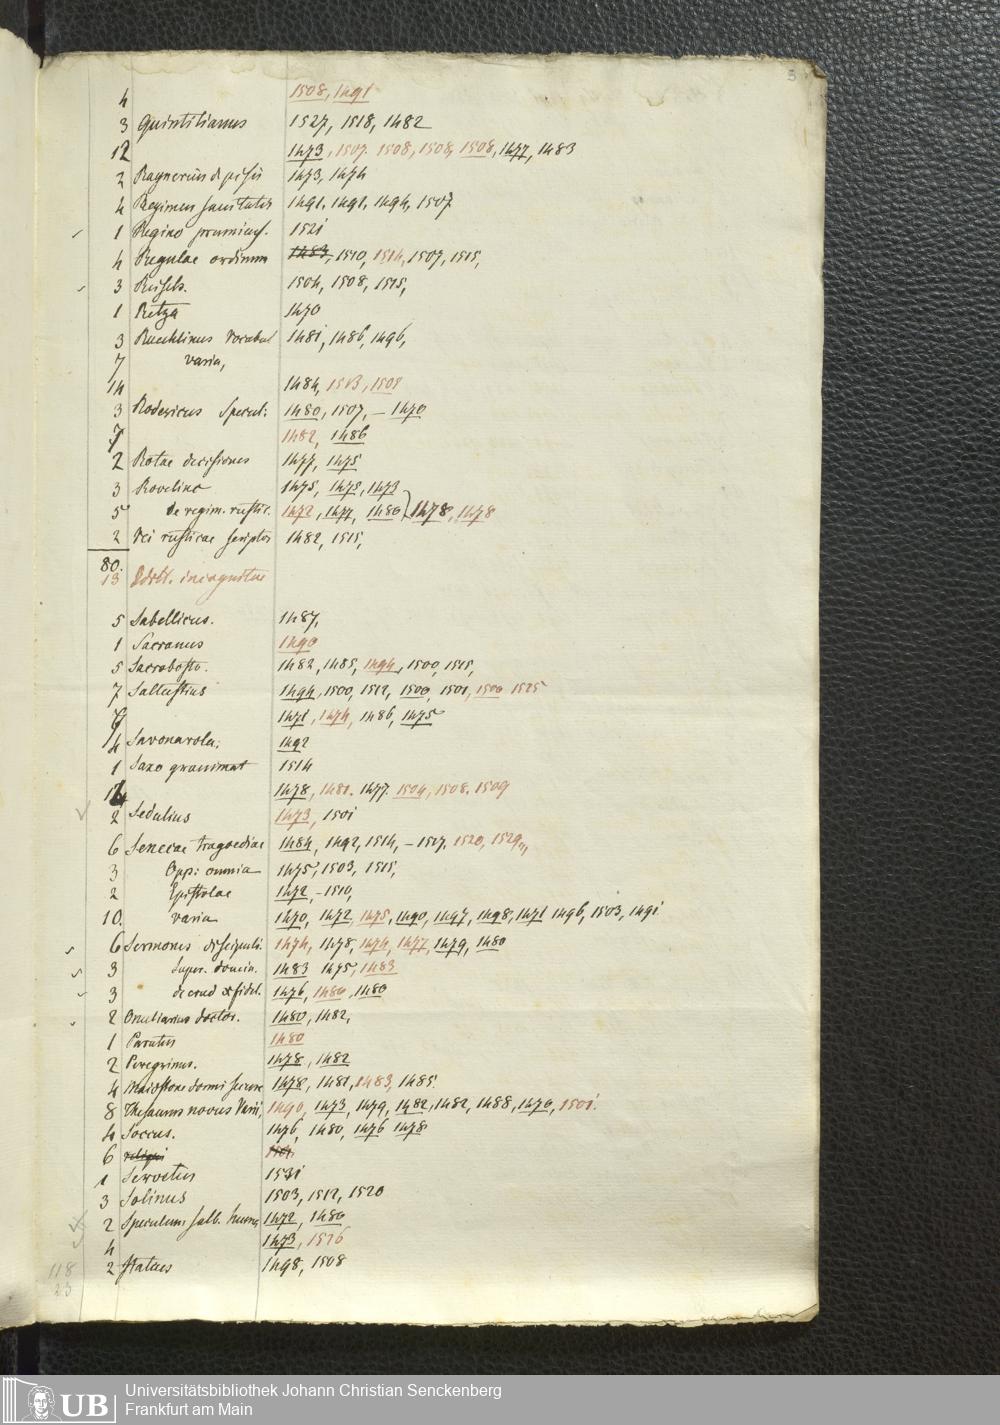 3
4 1508, 1491
3 Quintilianus 1527, 1518, 1482
12 1473, 1507. 1508, 1508, 1508, 1477, 1483
2 Raynerius de pisis 1473, 1474
4 Regimen sanitatis 1491, 1491, 1494, 1507
1 Regino prumiens. 1521
4 Regulae ordinum 1483, 1510, 1514, 1507, 1515,
3 Reisch. 1504, 1508, 1515,
1 Retza 1470
3 Reuchlinus Vocabul 1481, 1486, 1496,
7 varia,
14 1484, 1513, 1509
3 Rodericus Specul. 1480, 1507, – 1470
7 1482, 1486
2 Rotae decisiones 1477, 1475
3 Rovelinc 1475, 1475, 1473
5 de regim. rustic. 1472, 1477, 1480) 1478, 1478
2 Rei rusticae scriptor 1482, 1515,
80.
13 incognitae
5 Sabellicus. 1487,
1 Sacranus 1490
5 Sacrobosto. 1482, 1485, 1494, 1500, 1515,
7 Sallustius 1494, 1500, 1512, 1500, 1501, 1500 1525
1471, 1474, 1486, 1475
4 Savonarola, 1492
1 Saxo grammat 1514
14 1478, 1481. 1477 1504, 1508. 1509
2 Sedulius 1473, 1501
6 Senecae tragoediae 1484, 1492, 1514, – 1517. 1520, 1529,,,
3 Opp: omnia 1475, 1503, 1515,
2 Epistolae 1472, – 1510,
10. varia 1470, 1472, 1475, 1490, 1497, 1498, 1471 1496, 1503, 1491
6 Sermones discipuli. 1474, 1478, 1474, 1477, 1479, 1480
3 super. domin. 1483 1475, 1483
3 de erud xfidel. 1476, 1480, 1480
2 doctor. 1480, 1482,
1 Paratus 1480
2 Peregrinus. 1478, 1482
4 dormi secure 1478, 1481, 1483, 1485.
8 Thesaurus novus Varii, 1490, 1473, 1479, 1482, 1482, 1488, 1470, 1501.
4 Soccus. 1476, 1480, 1476 1478
6 reliqui
1 Servetus 1531
3 Solinus 1503, 1512, 1520
2 Speculum salv. human, 1472, 1480
4 1473, 1526
2 Statius 1498, 1508
118
23
UB
Universitätsbibliothek Johann Christian Senckenberg
Frankfurt am Main